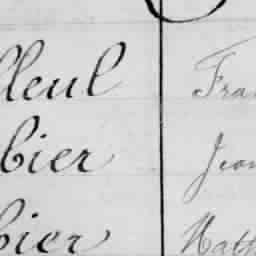 lleul Fra
bier Jean
bier Math